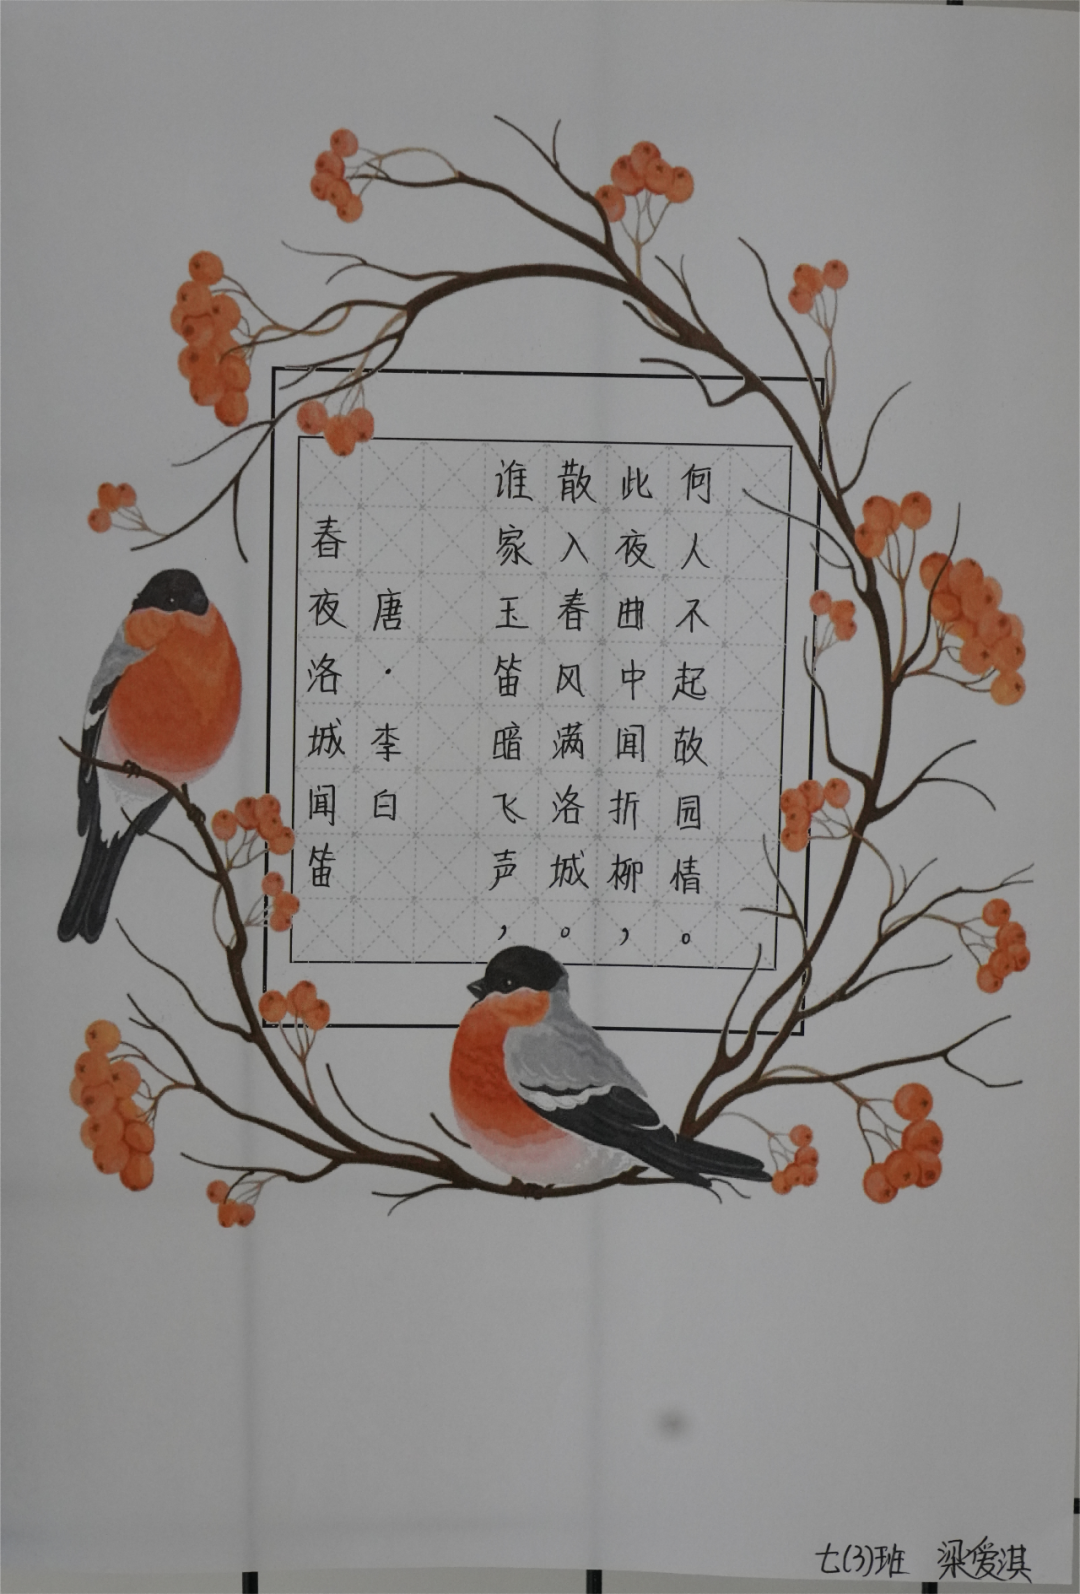 春夜洛城闻笛
唐·李白
谁家玉笛暗飞声，
散入春风满洛城。
此夜曲中闻折柳，
何人不起故园情。
七(3)班 梁爱淇